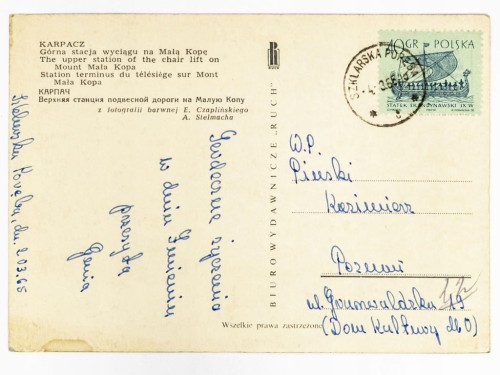 KARPACZ
Górna stacja wyciągu na Małą Kopę
The upper station of the chair lift on
Mount Mała Kopa
Station terminus du télésiège sur Mont
Mała Kopa
КАРПАЧ
Верхняя станция подвесной дороги на Малую Копу
z fotografii barwnej E. Czaplińskiego
A. Stelmacha
Serdeczne życzenia
w dniu Imienin
przesyła
Genia
RUCH
BIURO WYDAWNICZE „RUCH”
Wszelkie prawa zastrzeżone
SZKLARSKA PORĘBA
40 GR POLSKA
W.P.
Pinski
Kazimierz
Poznań
ul. Grunwaldzka 19
(Dom Kultury